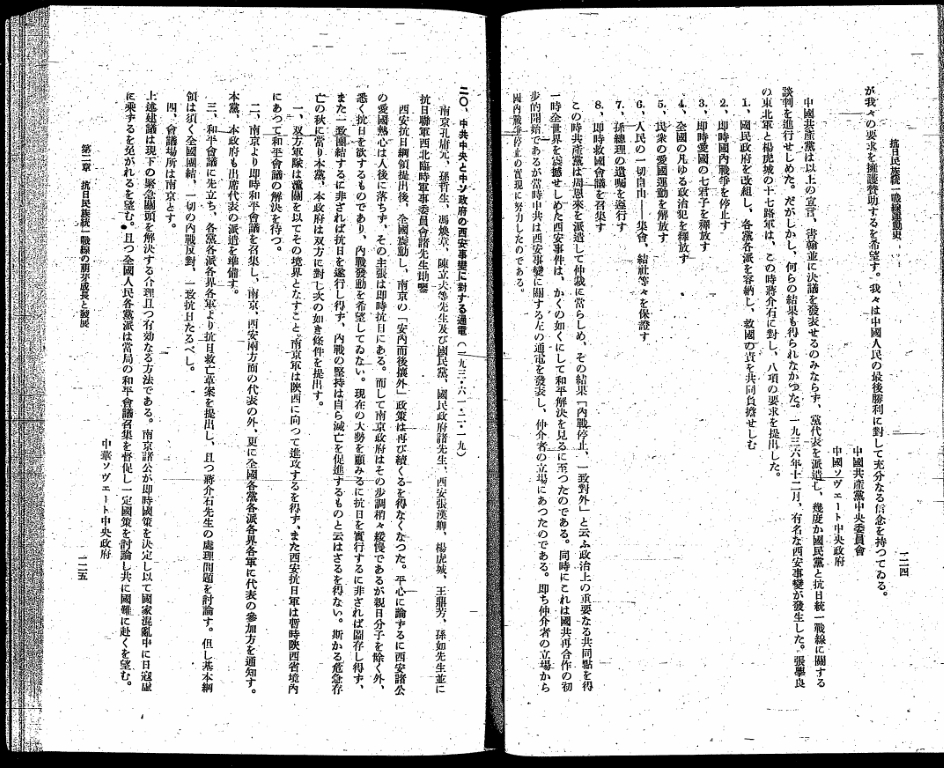 抗日民族統一戰線運動史
一二四
が我々の要求を擁護賛助するを希望す。我々は中國人民の最後勝利に對して充分なる信念を持つてゐる。
中國共產黨中央委員會
中國ソヴエート中央政府
中國共產黨は以上の宣言、書翰並に決議を發表せるのみならず、黨代表を派遣し、幾度か國民黨と抗日統一戰線に關する
談判を進行せしめた。だがしかし、何らの結果も得られなかつた。一九三六年十二月、有名な西安事變が發生した。張學良
の東北軍と楊虎城の十七路軍は、この時蔣介石に對し、八項の要求を提出した。
1、國民政府を改組し、各黨各派を容納し、救國の責を共同負擔せしむ
2、即時國內戰爭を停止す
3、即時愛國の七君子を釋放す
4、全國の凡ゆる政治犯を釋放す
5、民衆の愛國運動を解放す
6、人民の一切自由——集會、結社等々を保證す
7、孫總理の遺囑を遂行す
8、即時救國會議を召集す
この時共產黨は周恩來を派遣して仲裁に當らしめ、その結果「內戰停止、一致對外」と云ふ政治上の重要なる共同點を得
一時全世界を震撼せしめた西安事件は、かくの如くにして和平解決を見るに至つたのである。同時にこれは國共再合作の初
步的開始であるが當時中共は西安事變に關する左の通電を發表し、仲介者の立場にあつたのである。即ち仲介者の立場から
國內戰爭停止の實現に努力したのである。
二〇、中共中央と中ソ政府の西安事變に對する通電（一九三・六一・二・一九）
南京孔庸元、孫哲生、馮煥章、陳立夫等先生及び國民黨、國民政府諸先生、西安張漢卿、楊虎城、王鼎芳、孫如先生並に
抗日聯軍西北臨時軍事委員會諸先生勛鑒
西安抗日綱領提出後、全國震動し、南京の「安內而後攘外」政策は再び續くるを得なくなつた。平心に論ずるに西安諸公
の愛國熱心は人後に落ちず、その主張は即時抗日にある。而して南京政府はその步調稍々緩慢であるが親日分子を除く外、
悉く抗日を欲するものであり、內戰發動を希望してゐない。現在の大勢を顧みるに抗日を實行するに非ざれば圖存し得ず、
また一致團結するに非ざれば抗日を遂行し得ず、內戰の堅持は自ら滅亡を促進するものと云はざるを得ない。斯かる危急存
亡の秋に當り本黨、本政府は双方に對し次の如き條件を提出す。
一、双方軍隊は潼關を以てその境界となすこと、南京軍は陝西に向つて進攻するを得ず、また西安抗日軍は暫時陝西省境內
にあつて和平會議の解決を待つ。
二、南京より即時和平會議を召集し、南京、西安兩方面の代表の外、更に全國各黨各派各界各軍に代表の參加方を通知す。
本黨、本政府も出席代表の派遣を準備す。
三、和平會議に先立ち、各黨各派各界各軍より抗日救亡草案を提出し、且つ蔣介石先生の處理問題を討論す。但し基本綱
領は須く全國團結、一切の內戰反對、一致抗日たるべし。
四、會議場所は南京とす。
上述建議は現下の緊急關頭を解決する合理且つ有効なる方法である。南京諸公が即時國策を決定し以て國家混亂中に日寇虛
に乘するを免がれるを望む。且つ全國人民各黨派は當局の和平會議召集を督促し一定國策を討論し共に國難に赴くを望む。
中華ソヴエート中央政府
第二章 抗日民族統一戰線の萠芽成長と發展
一二五